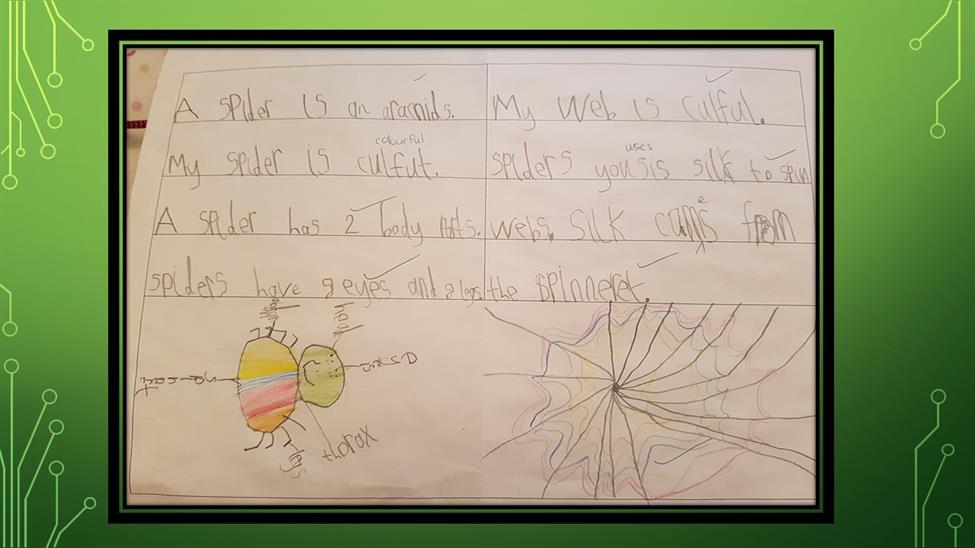 A spider is an aracnids.
colourful
My spider is culfut.
A spider has 2 body parts.
spiders have 8 eyes and 8 legs.
My Web is culful.
uses
spiders yousis silk to spin
webs. Silk comes from
the spinneret.
head
thorax
legs